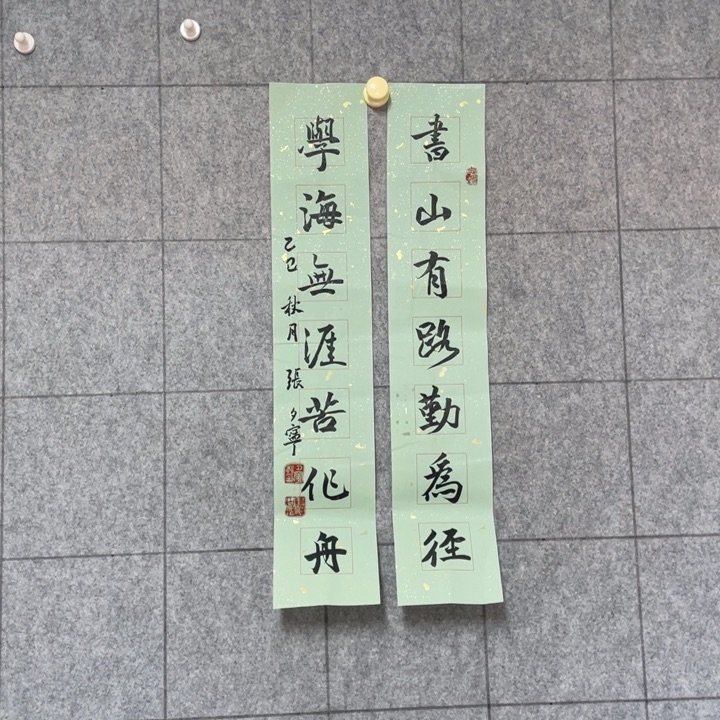 書山有路勤為径
學海無涯苦作舟
乙巳秋月張夕寧